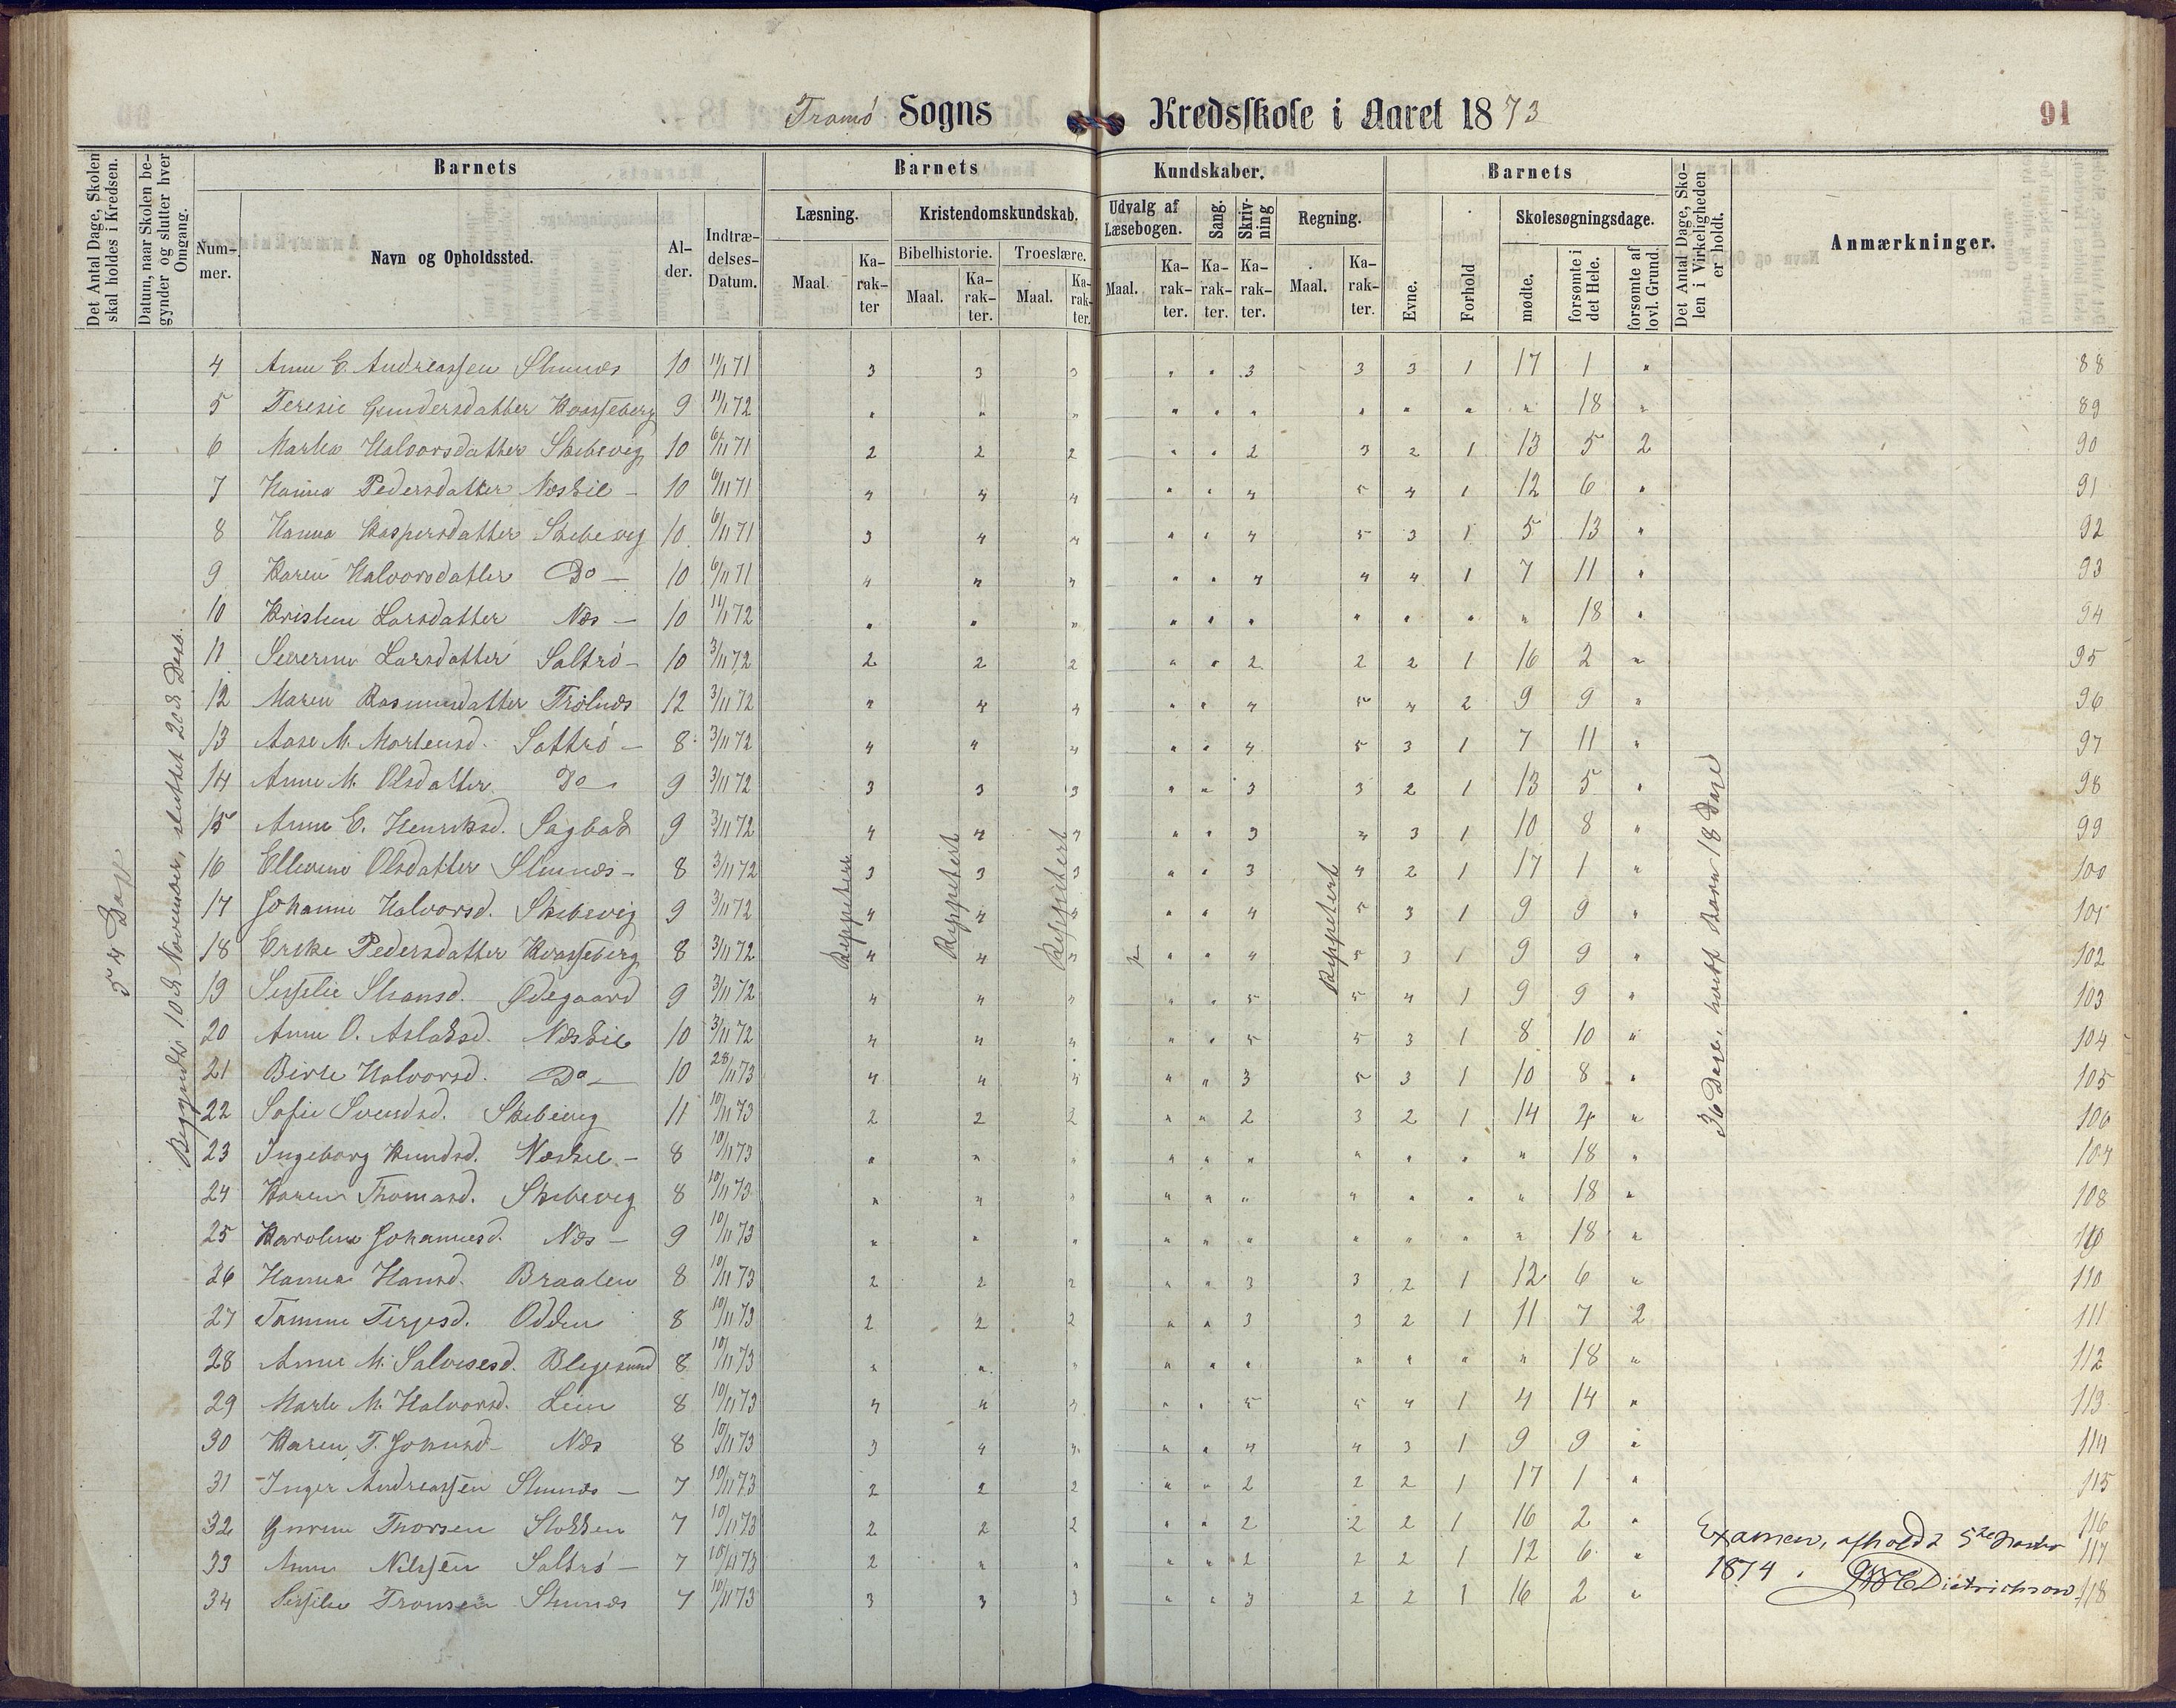 Tromø Sogns Kredsskole i Aaret 1873 91
Det Antal Dage, Skolen skal holdes i Kredsen.
Datum, naar Skolen begynder og slutter hver Omgang.
Barnets
Nummer.
Navn og Opholdssted.
Alder.
Indtrædelses-Datum.
Barnets Kundskaber.
Læsning. Kristendomskundskab. Udvalg af Læsebogen. Sang. Skrivning Regning.
Bibelhistorie. Troeslære.
Maal. Karakter Maal. Karakter. Maal. Karakter. Maal. Karakter. Karakter. Karakter. Maal. Karakter.
Barnets
Evne. Forhold Skolesøgningsdage.
mødte. forsømte i det Hele. forsømte af lovl. Grund.
Det Antal Dage, Skolen i Virkeligheden er holdt.
Anmærkninger.
54 Dage
Begyndte 10d November, sluttet 20d Desb.
4 Anne E. Andreassen 10 11/1 71 3 3 3 " " 3 3 3 1 17 1 " 88
5 Teresie Gundersdatter Kvasseberg 9 11/1 72 " " " " " " " " " " 18 " 89
6 Marthe Halvorsdatter Skibevig 10 6/11 71 2 2 2 " " 2 3 2 1 13 5 2 90
7 Hanna Pedersdatter Næskil - 10 6/11 71 4 4 4 " " 4 5 4 1 12 6 " 91
8 Hanna Kaspersdatter Skibevig 10 6/11 71 3 4 4 " " 4 5 3 1 5 13 " 92
9 Karen Halvorsdatter Do - 10 6/11 71 4 4 4 " " 4 4 4 1 7 11 " 93
10 Larsdatter Næs - 10 11/1 72 " " " " " " " " " " 18 " 94
11 Severine Larsdatter Saltrø - 10 3/11 72 2 2 2 " " 2 2 2 1 16 2 " 95
12 Maren Rasmusdatter 12 3/11 72 4 4 4 " " 4 5 4 2 9 9 " 96
13 Aase M. Mortensd. Saltrø - 8 3/11 72 4 4 4 " " 4 5 3 1 7 11 " 97
14 Anne M. Olsdatter Do - 9 3/11 72 3 3 3 " " 3 3 2 1 13 5 " 98
15 Anne E. Henriksd. Sagbak 9 3/11 72 4 4 4 " " 3 4 3 1 10 8 " 99
16 Ellevine Olsdatter 8 3/11 72 3 3 3 " " 3 4 2 1 17 1 " 100
17 Johanne Halvorsd. Skibevig 9 3/11 72 4 4 4 " " 4 5 3 1 9 9 " 101
18 Pedersdatter Kvasseberg 8 3/11 72 4 4 4 " " 4 5 3 1 9 9 " 102
19 Sisselie Ødegaard 9 3/11 72 4 4 4 " " 5 5 4 1 9 9 " 103
20 Anne O. Aslaksd. Næskil 10 3/11 72 4 4 4 " " 5 5 3 1 8 10 " 104
21 Birte Halvorsd. Do - 10 28/11 73 4 4 4 " " 3 5 3 1 10 8 " 105
22 Sofie Svendsd. Skibevig 11 10/11 73 2 2 2 " " 2 3 2 1 14 4 " 106
23 Ingeborg Knudsd. Næskil - 8 10/11 73 " " " " " " " " " " 18 " 107
24 Karen Thomasd. Skibevig 8 10/11 73 " " " " " " " " " " 18 " 108
25 Karoline Johannesd. Næs - 9 10/11 73 " " " " " " " " " " 18 "
26 Hanna Hansd. Braaten 8 10/11 73 2 2 2 " " 3 3 2 1 12 6 " 110
27 Tomine Terjesd. Odden 8 10/11 73 2 2 2 " " 3 3 2 1 11 7 2 111
28 Anne M. Salvesesd. 8 10/11 73 " " " " " " " " " " 18 " 112
29 Marte M. Halvorsd. 8 10/11 73 4 4 4 " " 5 5 4 1 4 14 " 113
30 Karen T. Johnsd - Næs 8 10/11 73 3 4 4 " " 4 4 3 1 9 9 " 114
31 Inger Andreassen 7 10/11 73 2 2 2 " " 2 2 2 1 17 1 " 115
32 Thorsen Stokken 7 10/11 73 2 2 2 " " 2 2 2 1 16 2 " 116
33 Anne Nilssen Saltrø - 7 10/11 73 2 " " " " 2 2 2 1 12 6 " 117
34 Sisselie Tronsen 7 10/11 73 3 3 3 " " 3 2 2 1 16 2 " 118
Reppetert
Reppetert
Reppetert
Reppetert
36 Dage, hvert Barn 18 Dage
Examen, afholdt 5te
1874. Dietrichson.